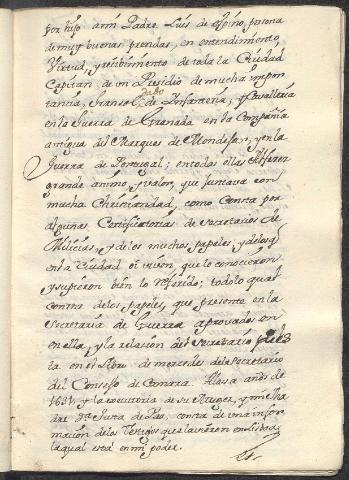 por hijo a mi Padre Luis de Espino, persona
de muy buenas prendas, en entendimiento,
Virtud, y recibimiento de toda la Ciudad
Capitan de un Presidio de mucha impor
tancia, de Infanteria, y Cavalleria
en la Guerra de Granada en la Compañia
antigua del Marques de Mondejar, y en la
Guerra de Portugal; en todas ellas Alferez
grande animo, y valor, que juntava con
mucha Christiandad, como consta por
algunas Certificatorias de Secretarios de
Milicias, y de los muchos papeles, y de los q
en la Ciudad oi viven, que lo conocieron
y supieron bien lo referido; todo lo qual
consta de los papeles, que presente en la
Secretaria de Guerra aprovados en
en ella, y la relacion del Secretario
ta en el Libro de mercedes de la Secretario
del Consejo de Camara años de
1631, y la executoria de su Muger, y mi Ma
dre consta de una infor
macion de los Testigos que
la qual está en mi poder.